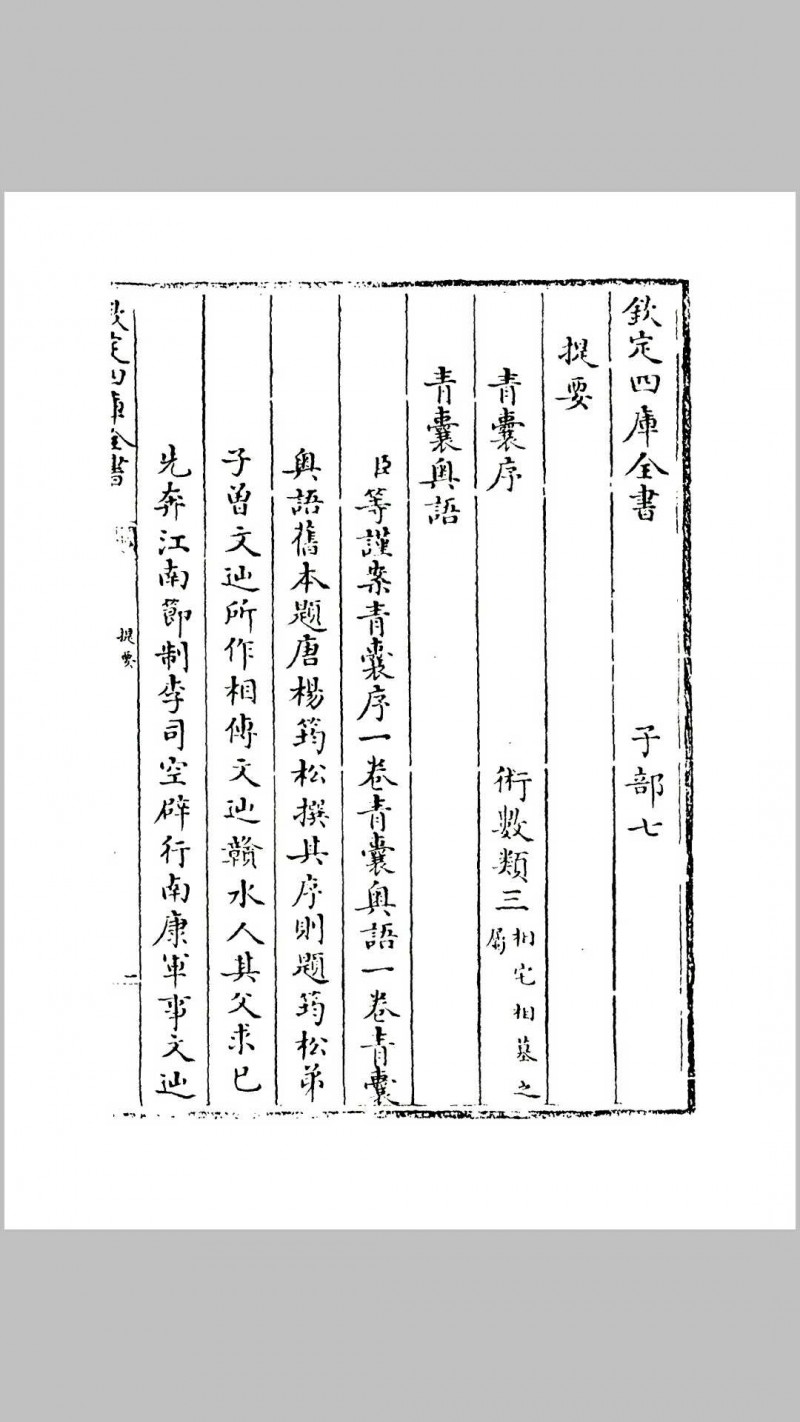 欽定四庫全書 子部七
提要
青囊序 術數類三 相宅相墓之屬
青囊奥語
臣等謹案青囊序一卷青囊奥語一卷青囊
奥語舊本題唐楊筠松撰其序則題筠松弟
子曽文辿所作相傳文辿贑水人其父求已
先奔江南節制李司空辟行南康軍事文辿
欽定四庫全書 提要 一